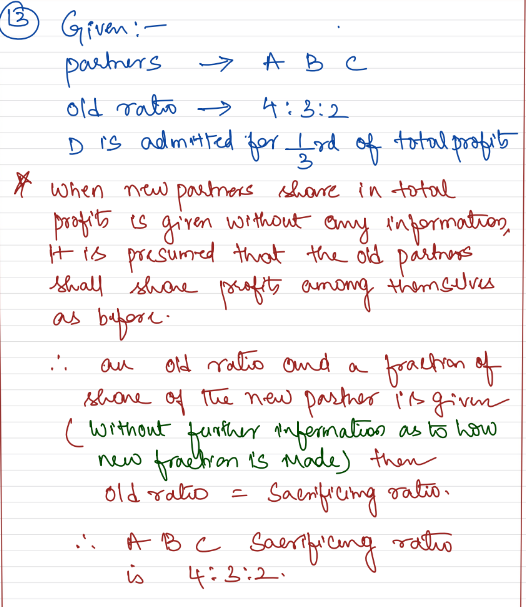 13 Given:-
partners → A B C
old ratio → 4:3:2
D is admitted for 1/3 rd of total profits
* when new partners share in total
profits is given without any information,
It is presumed that the old partners
shall share profits among themselves
as before.
∴ an old ratio and a fraction of
share of the new partner is given
(without further information as to how
new fraction is made) then
old ratio = Sacrificing ratio.
∴ A B C Sacrificing ratio
is 4:3:2.